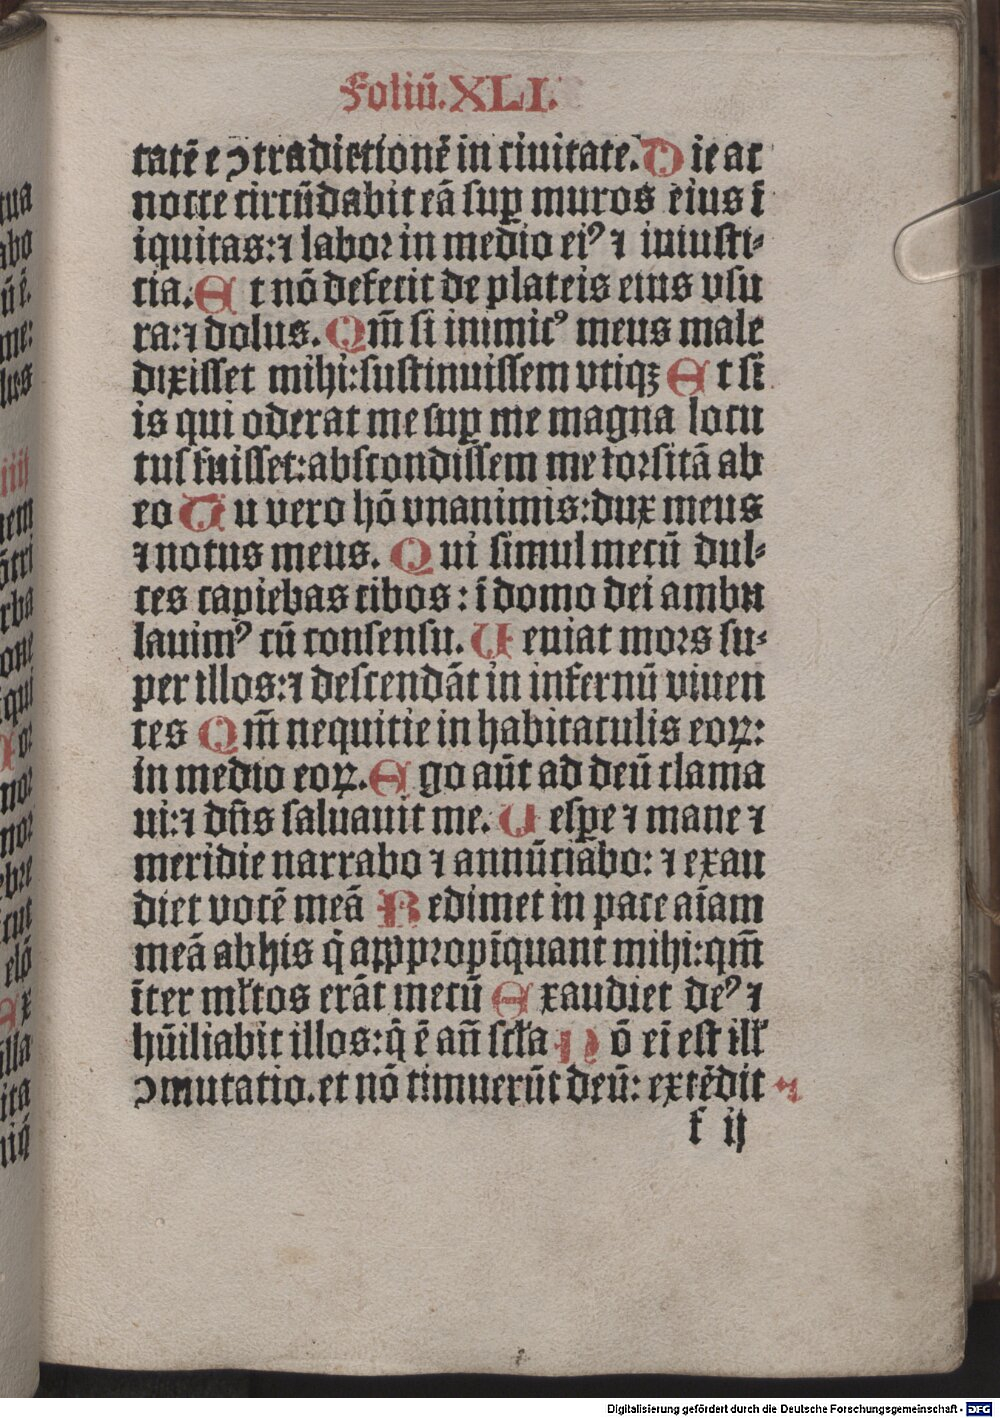 Foliū. XLI.
tatē e ↄtradictionē in ciuitate. Die ac
nocte circūdabit eā sup̄ muros eius ī
iquitas: ⁊ labor in medio eiꝰ ⁊ iniusti⸗
cia. Et nō defecit de plateis eius vsu
ra: ⁊ dolus. Qm̄ si inimicꝰ meus male
dixisset mihi: sustinuissem vtiqꝫ Et si
is qui oderat me sup̄ me magna locu
tus fuisset: abscondissem me forsitā ab
eo Tu vero hō vnanimis: dux meus
⁊ notus meus. Qui simul mecū dul⸗
ces capiebas cibos: ī domo dei ambu
lauimꝰ cū consensu. Ueniat mors su⸗
per illos: ⁊ descendāt in infernū viuen
tes Qm̄ nequitie in habitaculis eoꝝ:
in medio eoꝝ. Ego aūt ad deū clama
ui: ⁊ dn̄s saluauit me. Uesp̄e ⁊ mane ⁊
meridie narrabo ⁊ annūciabo: ⁊ exau
diet vocē meā Redimet in pace aīam
meā ab his q̄ appropīquant mihi: qm̄
īter ml̄tos erāt mecū Exaudiet deꝰ ⁊
hūiliabit illos: q̄ ē an̄ scl̄a Nō eī est ill̄
ↄmutatio. et nō timuerūt deū: extēdit
f ij
Digitalisierung gefördert durch die Deutsche Forschungsgemeinschaft - DFG